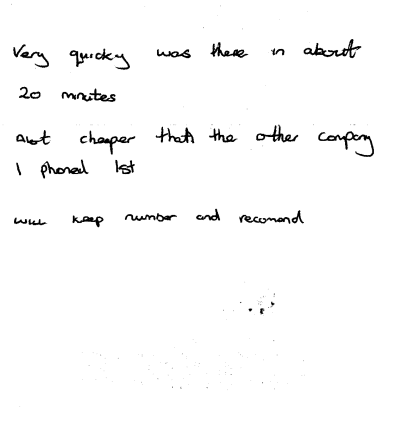 Very quicky was there in about
20 minutes
Alot cheaper than the other company
I phoned 1st
will keep number and recomend